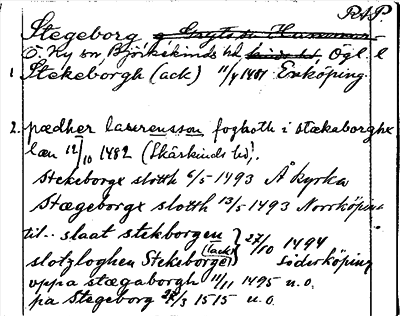 RAP.
Stegeborg
Ö. Ny sn, Björkekinds hd, Ögl. l
1 Stekeborgh (ack) 11/4 1401 Enköping.
2. pædher laurensson foghoth i stækaborghx
læn 12/10 1482 (Skärkinds hd).
Stekeborgx slotth 6/5-1493 Å kyrka
Stægeborgx slotth 13/5-1493 Norrköping
til.. slaat stekborgen
slotzloghen Stekeborge (lack) } 27/10 1494 Söderköping
uppa stægaborgh 11/11 1495 u.o.
pa Stegeborg 28/3 1515 u.o.